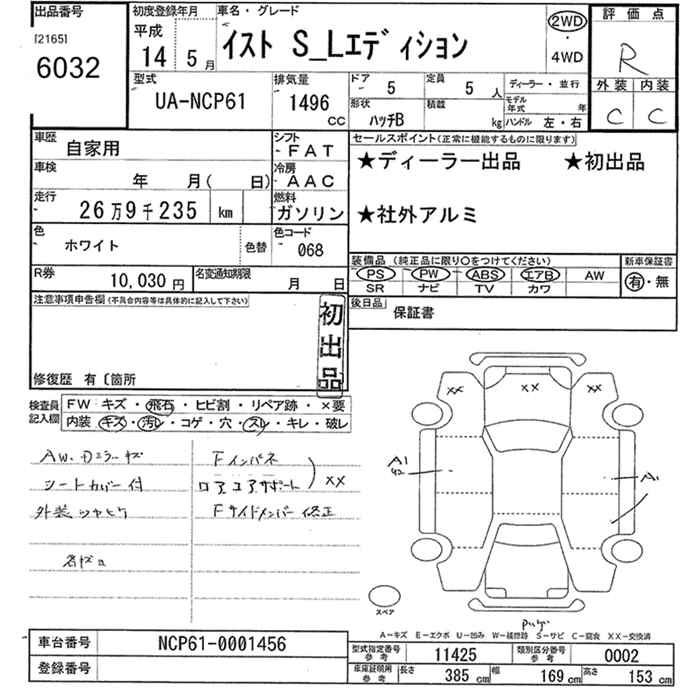 出品番号
[2165]
6032
初度登録年月
平成
14 5月
車名・グレード
イスト S_Lエディション
2WD
・
4WD
評価点
R
外装 内装
C C
型式
UA-NCP61
排気量
1496
CC
ドア
5
定員
5 人
ディーラー・並行
形状
ハッチB
積載
kg
モデル年式 年
ハンドル 左・右
車歴
自家用
シフト
- FAT
車検
年 月( 日)
冷房
- AAC
走行
26万9千235 km
燃料
ガソリン
色
ホワイト
色替
色コード
068
R券
10,030円
名変通知期限
月 日
セールスポイント(正常に機能するものに限ります)
★ディーラー出品 ★初出品
★社外アルミ
装備品(純正品に限り○をつけてください)
新車保証書
PS PW ABS エアB AW
SR ナビ TV カワ
有・無
後日品
保証書
注意事項申告欄(不具合内容等は具体的に記入して下さい)
初出品
修復歴 有〔箇所
検査員記入欄
FW キズ・飛石・ヒビ割・リペア跡・×要
内装 キズ・汚レ・コゲ・穴・スレ・キレ・破レ
AW.Dミラーキズ
シートカバー付
外装ツヤヒケ
Fインパネ
ロアコアサポート
XX
Fサイドメンバー修正
XX XX XX
A1
A1
スペア
A－キズ E－エクボ U－凹み W－補修跡 S－サビ C－腐食 XX－交換済
車台番号
NCP61-0001456
登録番号
型式指定番号
参考
11425
類別区分番号
参考
0002
車庫証明用
参考
長さ
385 cm
幅
169 cm
高さ
153 cm